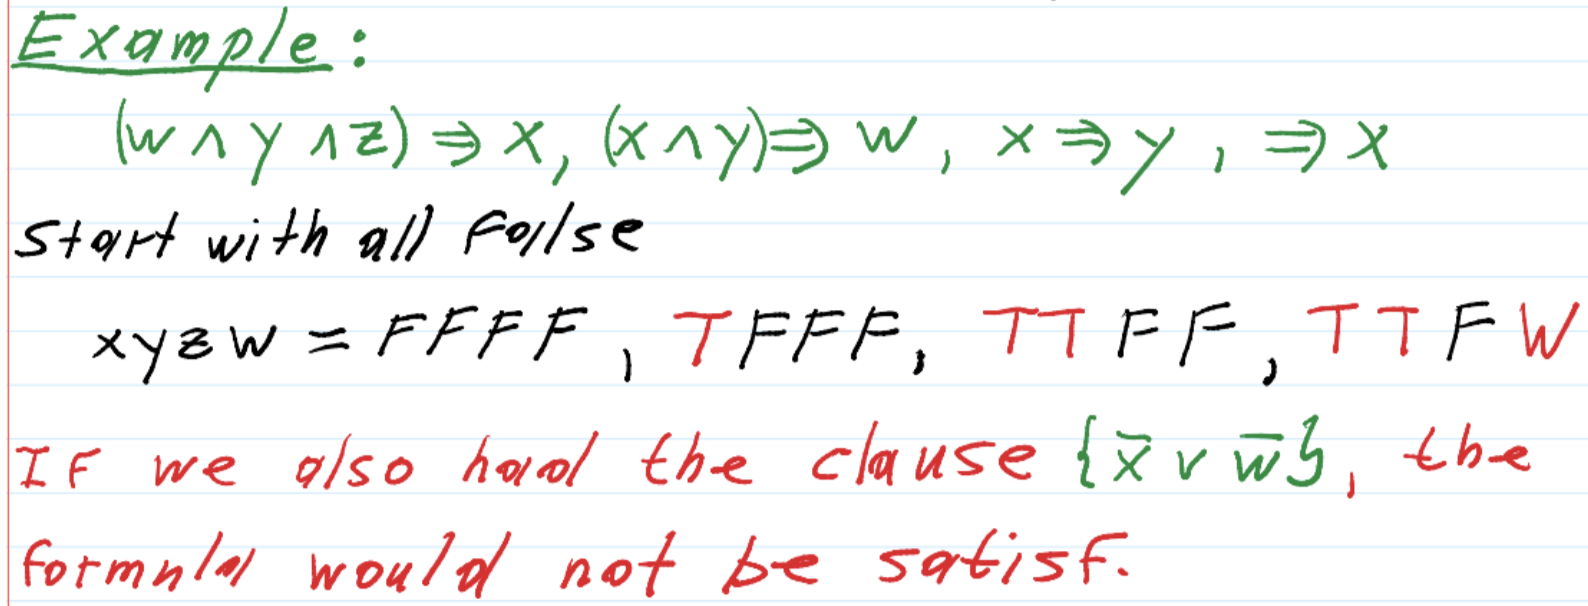 Example:
(w ∧ y ∧ z) ⇒ x, (x ∧ y) ⇒ w, x ⇒ y, ⇒ x
Start with all False
xyzw = FFFF, TFFF, TTFF, TTFW
If we also had the clause {x̅ ∨ w̅}, the
formula would not be satisf.